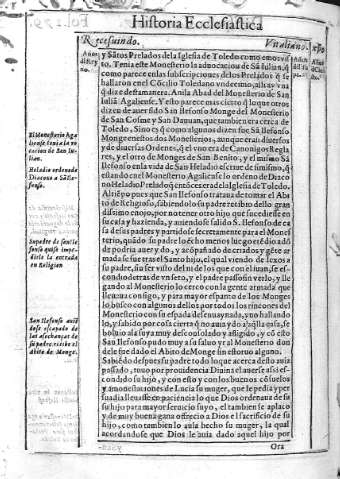 Historia Ecclesiastica
Recesuindo. Vitaliano.
y Sātos Prelados dela Iglesia de Toledo como emos vi
sto. Tenia este Monesterio la aduocacion de Sā Iulian, q̄
como parece enlas subscripciones delos Prelados q̄ se
hallaron en el Cōcilio Toledano vndecimo, alli ay vna
q̄ dize desta manera. Anila Abad del Monesterio de San
Iuliā Agaliense. Y esto parece mas cierto q̄ lo que otros
dizen de auer sido San Ilefonso Monge del Monesterio
de San Cosme y San Damian, que tambien era cerca de
Toledo, Sino es q̄ como algunos dizen fue Sā Ilefonso
Monge en estos dos Monesterios, aunque eran diuersos
y de diuersas Ordenes, q̄ el vno era de Canonigos Regla
res, y el otro de Monges de San Benito, y el mismo Sā
Ilefonso en la vida de San Heladio escriue de si mismo, q̄
estando en el Monesterio Agaliense lo ordeno de Diaco
no Heladio Prelado q̄ entōces era dela Iglesia de Toledo.
Al tiēpo pues que San Ilefonso trataua de tomar el Abi
to de Religioso, sabiendolo su padre recibio dello gran
dissimo enojo, por no tener otro hijo que sucediesse en
su casa y hazienda, y auiendose salido S. Ilefonso de ca
sa de sus padres y partidose secretamente para el Mone
sterio, quādo su padre lo echo menos luego rēdio adō
de podria auer ydo, y acōpañado de criados y gēte ar
mada se fue tras el Santo hijo, el qual viendo de lexos a
su padre, sin ser visto del ni de los que con el iuan, se es
condio detras de vn seto, y el padre passo sin verlo, y lle
gando al Monesterio lo cerco con la gente armada que
lleuaua consigo, y para mayor espanto de los Monges
lo busco con algunos dellos por todos los rincones del
Monesterio con su espada desenuaynada, y no hallando
lo, y sabido por cosa cierta q̄ no auia ydo a aq̄lla casa, se
boluio ala suya muy desconsolado y afligido, y cō esto
San Ilefonso pudo muy a su saluo yr al Monesterio don
de le fue dado el Abito de Monge sin estoruo alguno.
Sabido despues su padre todo lo que acerca desto auia
passado, tuuo por prouidencia Diuina el auerse assi es
condido su hijo, y con esto y con los buenos cōsejos
y amonestaciones de Lucia su muger, que le pedia y per
suadia lleuasse en paciencia lo que Dios ordenaua de su
su hijo para mayor seruicio suyo, el tambien se aplaco
y de muy buena gana offrecio a Dios el sacrificio de su
hijo, como tambien lo auia hecho su muger, la qual
acordandose que Dios le auia dado aquel hijo por
Ora
El Monesterio Aga
liense, tenia la vo
cacion de San Iu
lian.
Heladio ordenado
Diacono a Sā Ile-
fonso.
Su padre de san Ile
fonso quiso impe-
dirle la entrada
en Religion
San Ilefonso auiē
dose escapado de
las asechanças de
su padre, recibe el
Abito de Monge.